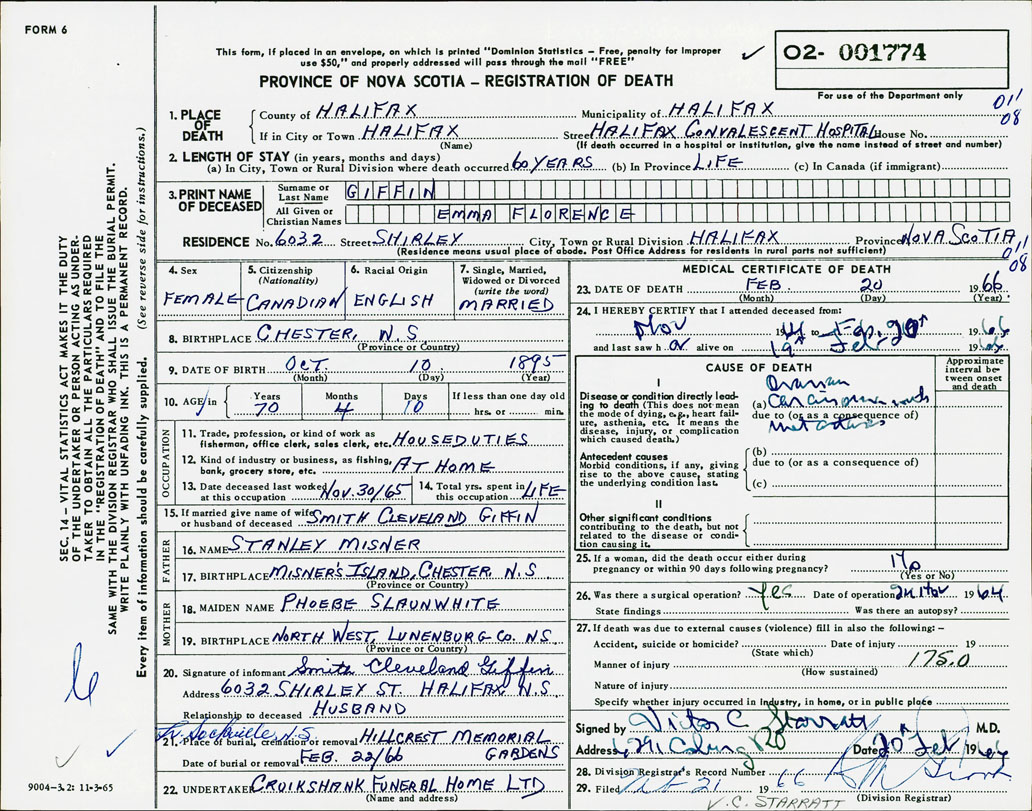 FORM 6
This form, if placed in an envelope, on which is printed "Dominion Statistics – Free, penalty for improper
use $50," and properly addressed will pass through the mail "FREE"
O2- 001774
PROVINCE OF NOVA SCOTIA – REGISTRATION OF DEATH
For use of the Department only
011
08
1. PLACE OF DEATH
County of HALIFAX Municipality of HALIFAX
If in City or Town HALIFAX Street HALIFAX CONVALESCENT HOSPITAL House No.
(Name) (If death occurred in a hospital or institution, give the name instead of street and number)
2. LENGTH OF STAY (in years, months and days)
(a) In City, Town or Rural Division where death occurred 60 YEARS (b) In Province LIFE (c) In Canada (if immigrant)
3. PRINT NAME OF DECEASED
Surname or Last Name GIFFIN
All Given or Christian Names EMMA FLORENCE
RESIDENCE No. 6032 Street SHIRLEY City, Town or Rural Division HALIFAX Province NOVA SCOTIA
(Residence means usual place of abode. Post Office Address for residents in rural parts not sufficient)
011
08
SEC. 14 – VITAL STATISTICS ACT MAKES IT THE DUTY
OF THE UNDERTAKER OR PERSON ACTING AS UNDER-
TAKER TO OBTAIN ALL THE PARTICULARS REQUIRED
IN THE "REGISTRATION OF DEATH" AND TO FILE THE
SAME WITH THE DIVISION REGISTRAR WHO SHALL ISSUE THE BURIAL PERMIT.
WRITE PLAINLY WITH UNFADING INK. THIS IS A PERMANENT RECORD.
Every item of information should be carefully supplied. (See reverse side for instructions.)
4. Sex
FEMALE
5. Citizenship
(Nationality)
CANADIAN
6. Racial Origin
ENGLISH
7. Single, Married,
Widowed or Divorced
(write the word)
MARRIED
8. BIRTHPLACE CHESTER, N.S.
(Province or Country)
9. DATE OF BIRTH OCT. 10 1895
(Month) (Day) (Year)
10. AGE in Years Months Days If less than one day old
70 4 10 hrs. or min.
OCCUPATION
11. Trade, profession, or kind of work as
fisherman, office clerk, sales clerk, etc. HOUSEDUTIES
12. Kind of industry or business, as fishing,
bank, grocery store, etc. AT HOME
13. Date deceased last worked
at this occupation NOV. 30/65
14. Total yrs. spent in
this occupation LIFE
15. If married give name of wife
or husband of deceased SMITH CLEVELAND GIFFIN
FATHER
16. NAME STANLEY MISNER
17. BIRTHPLACE MISNER'S ISLAND, CHESTER N.S.
(Province or Country)
MOTHER
18. MAIDEN NAME PHOEBE SLAUNWHITE
19. BIRTHPLACE NORTH WEST, LUNENBURG CO. N.S.
(Province or Country)
20. Signature of informant Smith Cleveland Giffin
Address 6032 SHIRLEY ST. HALIFAX N.S.
Relationship to deceased HUSBAND
Lr. Sackville, N.S.
21. Place of burial, cremation or removal HILLCREST MEMORIAL
GARDENS
Date of burial or removal FEB. 22/66
22. UNDERTAKER CRUIKSHANK FUNERAL HOME LTD
(Name and address)
9004-3.2: 11-3-65
MEDICAL CERTIFICATE OF DEATH
23. DATE OF DEATH FEB. 20 1966
(Month) (Day) (Year)
24. I HEREBY CERTIFY that I attended deceased from:
Nov 1964 to Feb. 20th 1966
and last saw her alive on 19th Feb 1966
CAUSE OF DEATH
Approximate
interval be-
tween onset
and death
I
Disease or condition directly lead-
ing to death (This does not mean
the mode of dying, e.g., heart fail-
ure, asthenia, etc. It means the
disease, injury, or complication
which caused death.)
Ovarian
(a) Carcinoma with
due to (or as a consequence of)
metastases
Antecedent causes
Morbid conditions, if any, giving
rise to the above cause, stating
the underlying condition last.
(b)
due to (or as a consequence of)
(c)
II
Other significant conditions
contributing to the death, but not
related to the disease or condi-
tion causing it.
25. If a woman, did the death occur either during
pregnancy or within 90 days following pregnancy? No
(Yes or No)
26. Was there a surgical operation? Yes Date of operation 24 Nov 1964
State findings Was there an autopsy?
27. If death was due to external causes (violence) fill in also the following: –
Accident, suicide or homicide? Date of injury 19
(State which)
Manner of injury 175.0
(How sustained)
Nature of injury
Specify whether injury occurred in Industry, in home, or in public place
Signed by Victor C Starratt M.D.
Address 6291 Coburg Rd Date 20th Feb 1966
28. Division Registrar's Record Number
29. Filed 21 1966
(Division Registrar)
V.C. STARRATT